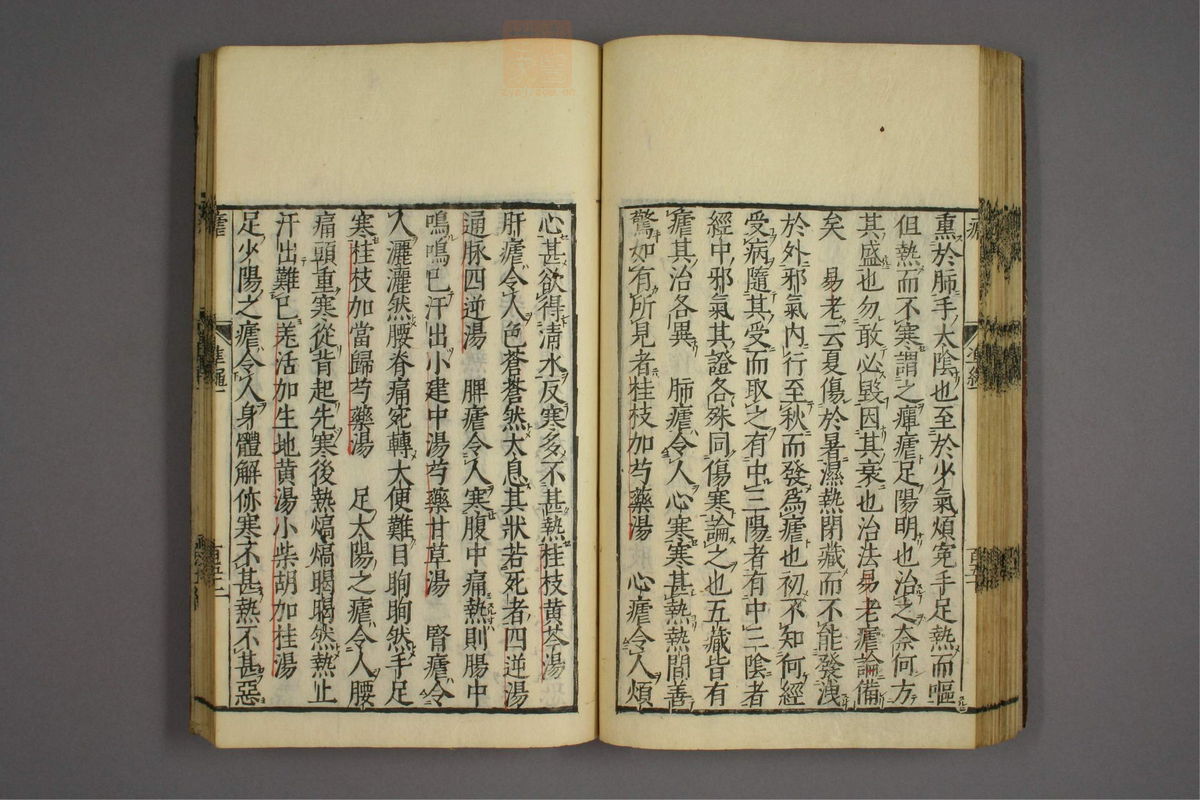 熏於肺手太陰也至於少氣煩寃手足熱而嘔
但熱而不寒謂之癉瘧足陽明也治之奈何方
其盛也勿敢必毀因其衰也治法易老瘧論備
矣 易老云夏傷於暑濕熱閉藏而不能發洩
於外邪氣內行至秋而發爲瘧也初不知何經
受病隨其受而取之有中三陽者有中三陰者
經中邪氣其證各殊同傷寒論之也五藏皆有
瘧其治各異 肺瘧令人心寒寒甚熱熱間善
驚如有所見者桂枝加芍藥湯 心瘧令人煩
心甚欲得清水反寒多不甚熱桂枝黃芩湯
肝瘧令人色蒼蒼然太息其狀若死者四逆湯
通脉四逆湯 脾瘧令人寒腹中痛熱則腸中
鳴鳴已汗出小建中湯芍藥甘草湯 腎瘧令
人灑灑然腰脊痛宛轉大便難目眴眴然手足
寒桂枝加當歸芍藥湯 足太陽之瘧令人腰
痛頭重寒從背起先寒後熱熇熇暍暍然熱止
汗出難已羌活加生地黃湯小柴胡加桂湯
足少陽之瘧令人身體解㑊寒不甚熱不甚惡
瘧
準繩